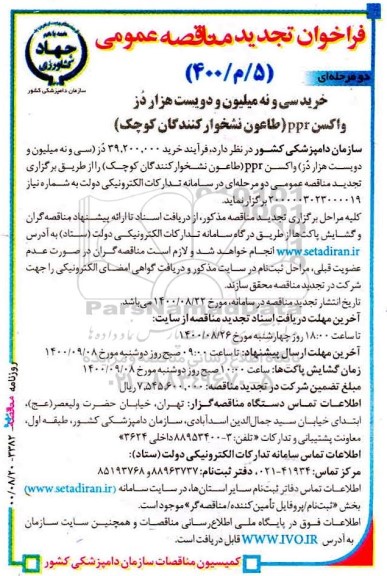 فراخوان تجدید مناقصه عمومی
(۵/م/۴۰۰)
دو مرحله‌ای
جهاد
کشاورزی
سازمان دامپزشکی کشور
خرید سی و نه میلیون و دویست هزار دُز
واکسن ppr (طاعون نشخوار کنندگان کوچک)
سازمان دامپزشکی کشور در نظر دارد، فرآیند خرید ۳۹,۲۰۰,۰۰۰ دُز (سی و نه میلیون و
دویست هزار دُز) واکسن ppr (طاعون نشخوار کنندگان کوچک) را از طریق برگزاری
تجدید مناقصه عمومی دو مرحله‌ای در سامانه تدارکات الکترونیکی دولت به شماره نیاز
۲۰۰۰۰۰۳۰۲۳۰۰۰۰۱۹ برگزار نماید.
کلیه مراحل برگزاری تجدید مناقصه مذکور، از دریافت اسناد تا ارائه پیشنهاد مناقصه گران
و گشایش پاکت‌ها از طریق درگاه سامانه تدارکات الکترونیکی دولت (ستاد) به آدرس
www.setadiran.ir انجام خواهد شد و لازم است مناقصه گران در صورت عدم
عضویت قبلی، مراحل ثبت نام در سایت مذکور و دریافت گواهی امضای الکترونیکی را جهت
شرکت در تجدید مناقصه محقق سازند.
تاریخ انتشار تجدید مناقصه در سامانه، مورخ ۱۴۰۰/۰۸/۲۲ می‌باشد.
آخرین مهلت دریافت اسناد تجدید مناقصه از سایت:
تا ساعت ۱۸:۰۰ روز چهارشنبه مورخ ۱۴۰۰/۰۸/۲۶
آخرین مهلت ارسال پیشنهاد: تا ساعت ۰۹:۰۰ صبح روز دوشنبه مورخ ۱۴۰۰/۰۹/۰۸
زمان گشایش پاکت‌ها: ساعت ۱۰:۰۰ صبح روز دوشنبه مورخ ۱۴۰۰/۰۹/۰۸
مبلغ تضمین شرکت در تجدید مناقصه: ۷,۵۴۵,۶۰۰,۰۰۰ ریال
اطلاعات تماس دستگاه مناقصه گزار: تهران، خیابان حضرت ولیعصر (عج)،
ابتدای خیابان سید جمال‌الدین اسدآبادی، سازمان دامپزشکی کشور، طبقه اول،
معاونت پشتیبانی و تدارکات «تلفن: ۳-۸۸۹۵۳۴۰۰ داخلی ۳۶۲۴»
اطلاعات تماس سامانه تدارکات الکترونیکی دولت (ستاد):
مرکز تماس: ۴۱۹۳۴-۰۲۱، دفتر ثبت‌نام: ۸۸۹۶۹۷۳۷ و ۸۵۱۹۳۷۶۸
اطلاعات تماس دفاتر ثبت‌نام سایر استان‌ها، در سایت سامانه (www.setadiran.ir)
بخش «ثبت‌نام/پروفایل تأمین‌کننده/مناقصه‌گر» موجود است.
اطلاعات فوق در پایگاه ملی اطلاع‌رسانی مناقصات و همچنین سایت سازمان
به آدرس WWW.IVO.IR قابل دریافت است.
کمیسیون مناقصات سازمان دامپزشکی کشور